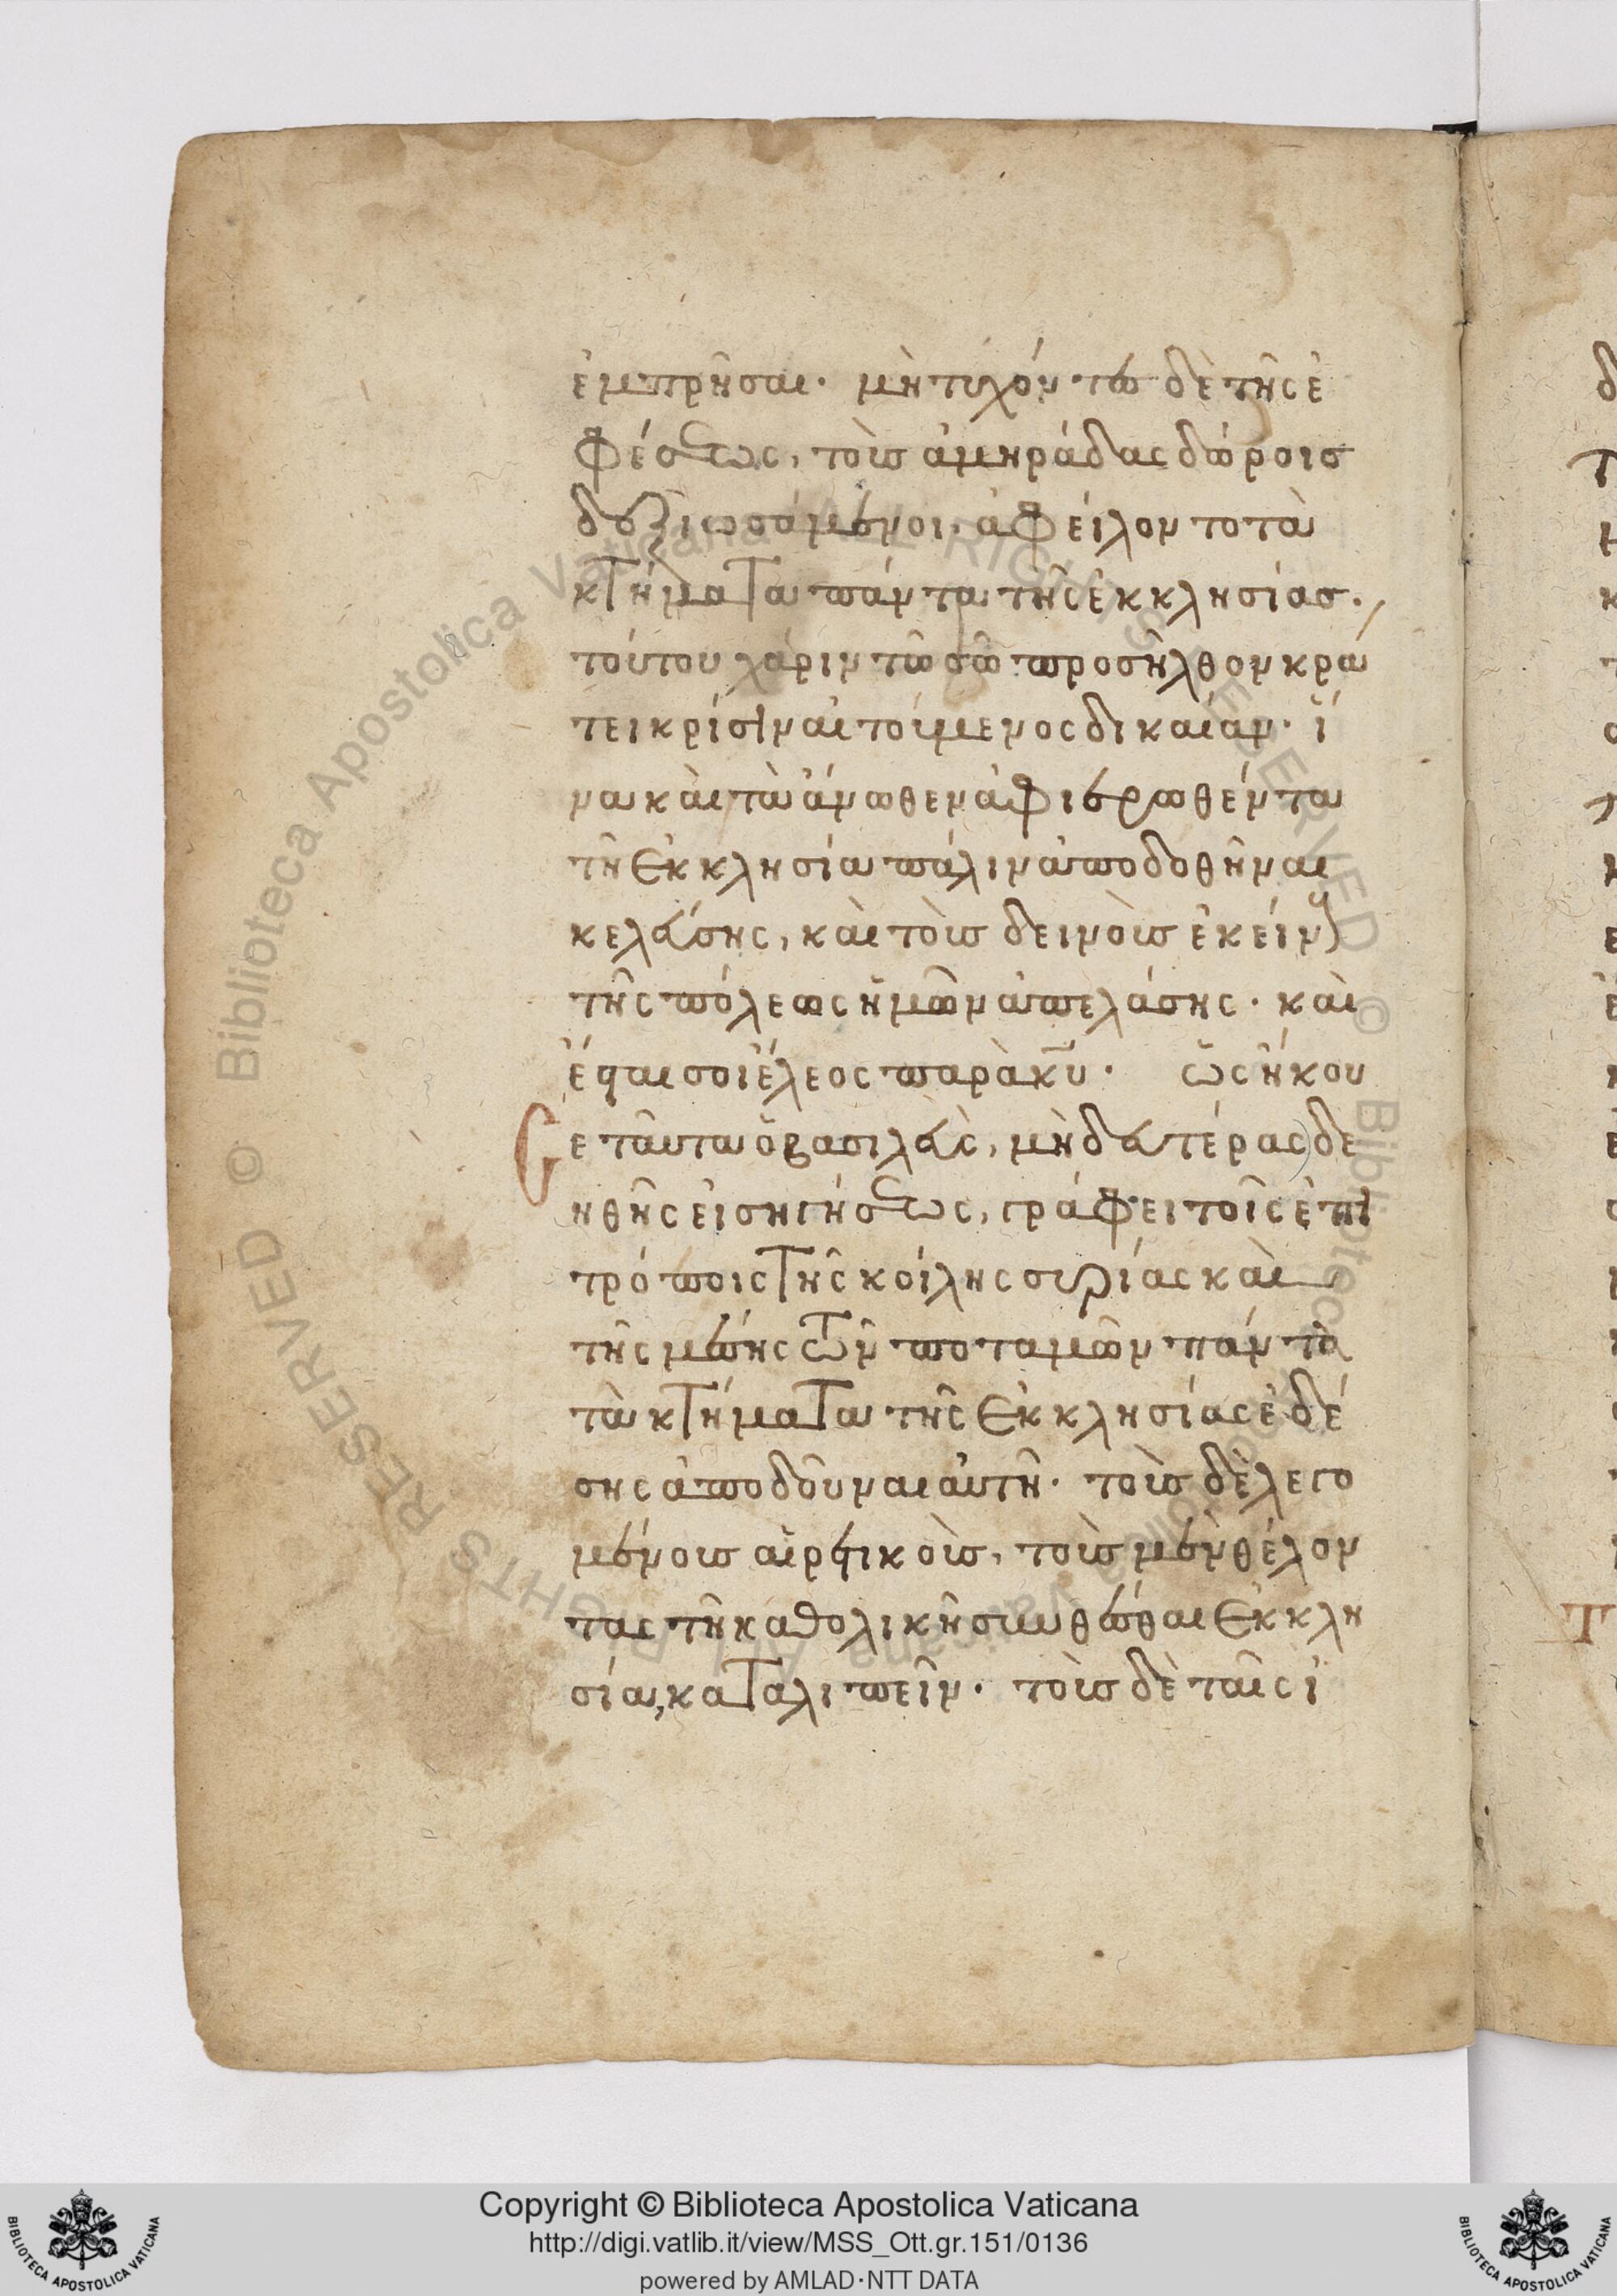 ἐμπρῆσαι. μὴ τυχόντων δὲ τῆς ἐ
φέσεως, τοὺς ἀμηράδας δώροις
δεξιωσάμενοι, ἀφείλοντο τὰ
κτήματα πάντα τῆς ἐκκλησίας.
τούτου χάριν τῶ σῶ προσῆλθον κρά
τει κρίσιν αἰτούμενος δικαίαν. ἵ
να καὶ τὰ ἄνωθεν ἀφιερωθέντα
τῆ ἐκκλησία πάλιν ἀποδοθῆναι
κελεύσης, καὶ τοὺς δεινοὺς ἐκείνους
τῆς πόλεως ἡμῶν ἀπελάσης. καὶ
ἔσται σοι ἔλεος παρὰ κυ. ὡς ἤκου
σε ταῦτα ὁ βασιλεὺς, μὴ δευτέρας δε
ηθῆς εἰσηγήσεως, γράφει τοῖς ἐπι
τρόποις τῆς κοίλης συρίας καὶ
τῆς μέσης τῶν ποταμῶν πάντα
τὰ κτήματα τῆς ἐκκλησίας ἐδέ
σης ἀποδοῦναι αὐτῆ. τοὺς δὲ λεγο
μένους αἱρετικοὺς, τοὺς μὲν θέλον
τας τῆ καθολικῆ συνθέσθαι ἐκκλη
σία, καταλιπεῖν. τοὺς δὲ ταῖς ἰ
Copyright © Biblioteca Apostolica Vaticana
http://digi.vatlib.it/view/MSS_Ott.gr.151/0136
powered by AMLAD·NTT DATA
BIBLIOTECA APOSTOLICA VATICANA
BIBLIOTECA APOSTOLICA VATICANA